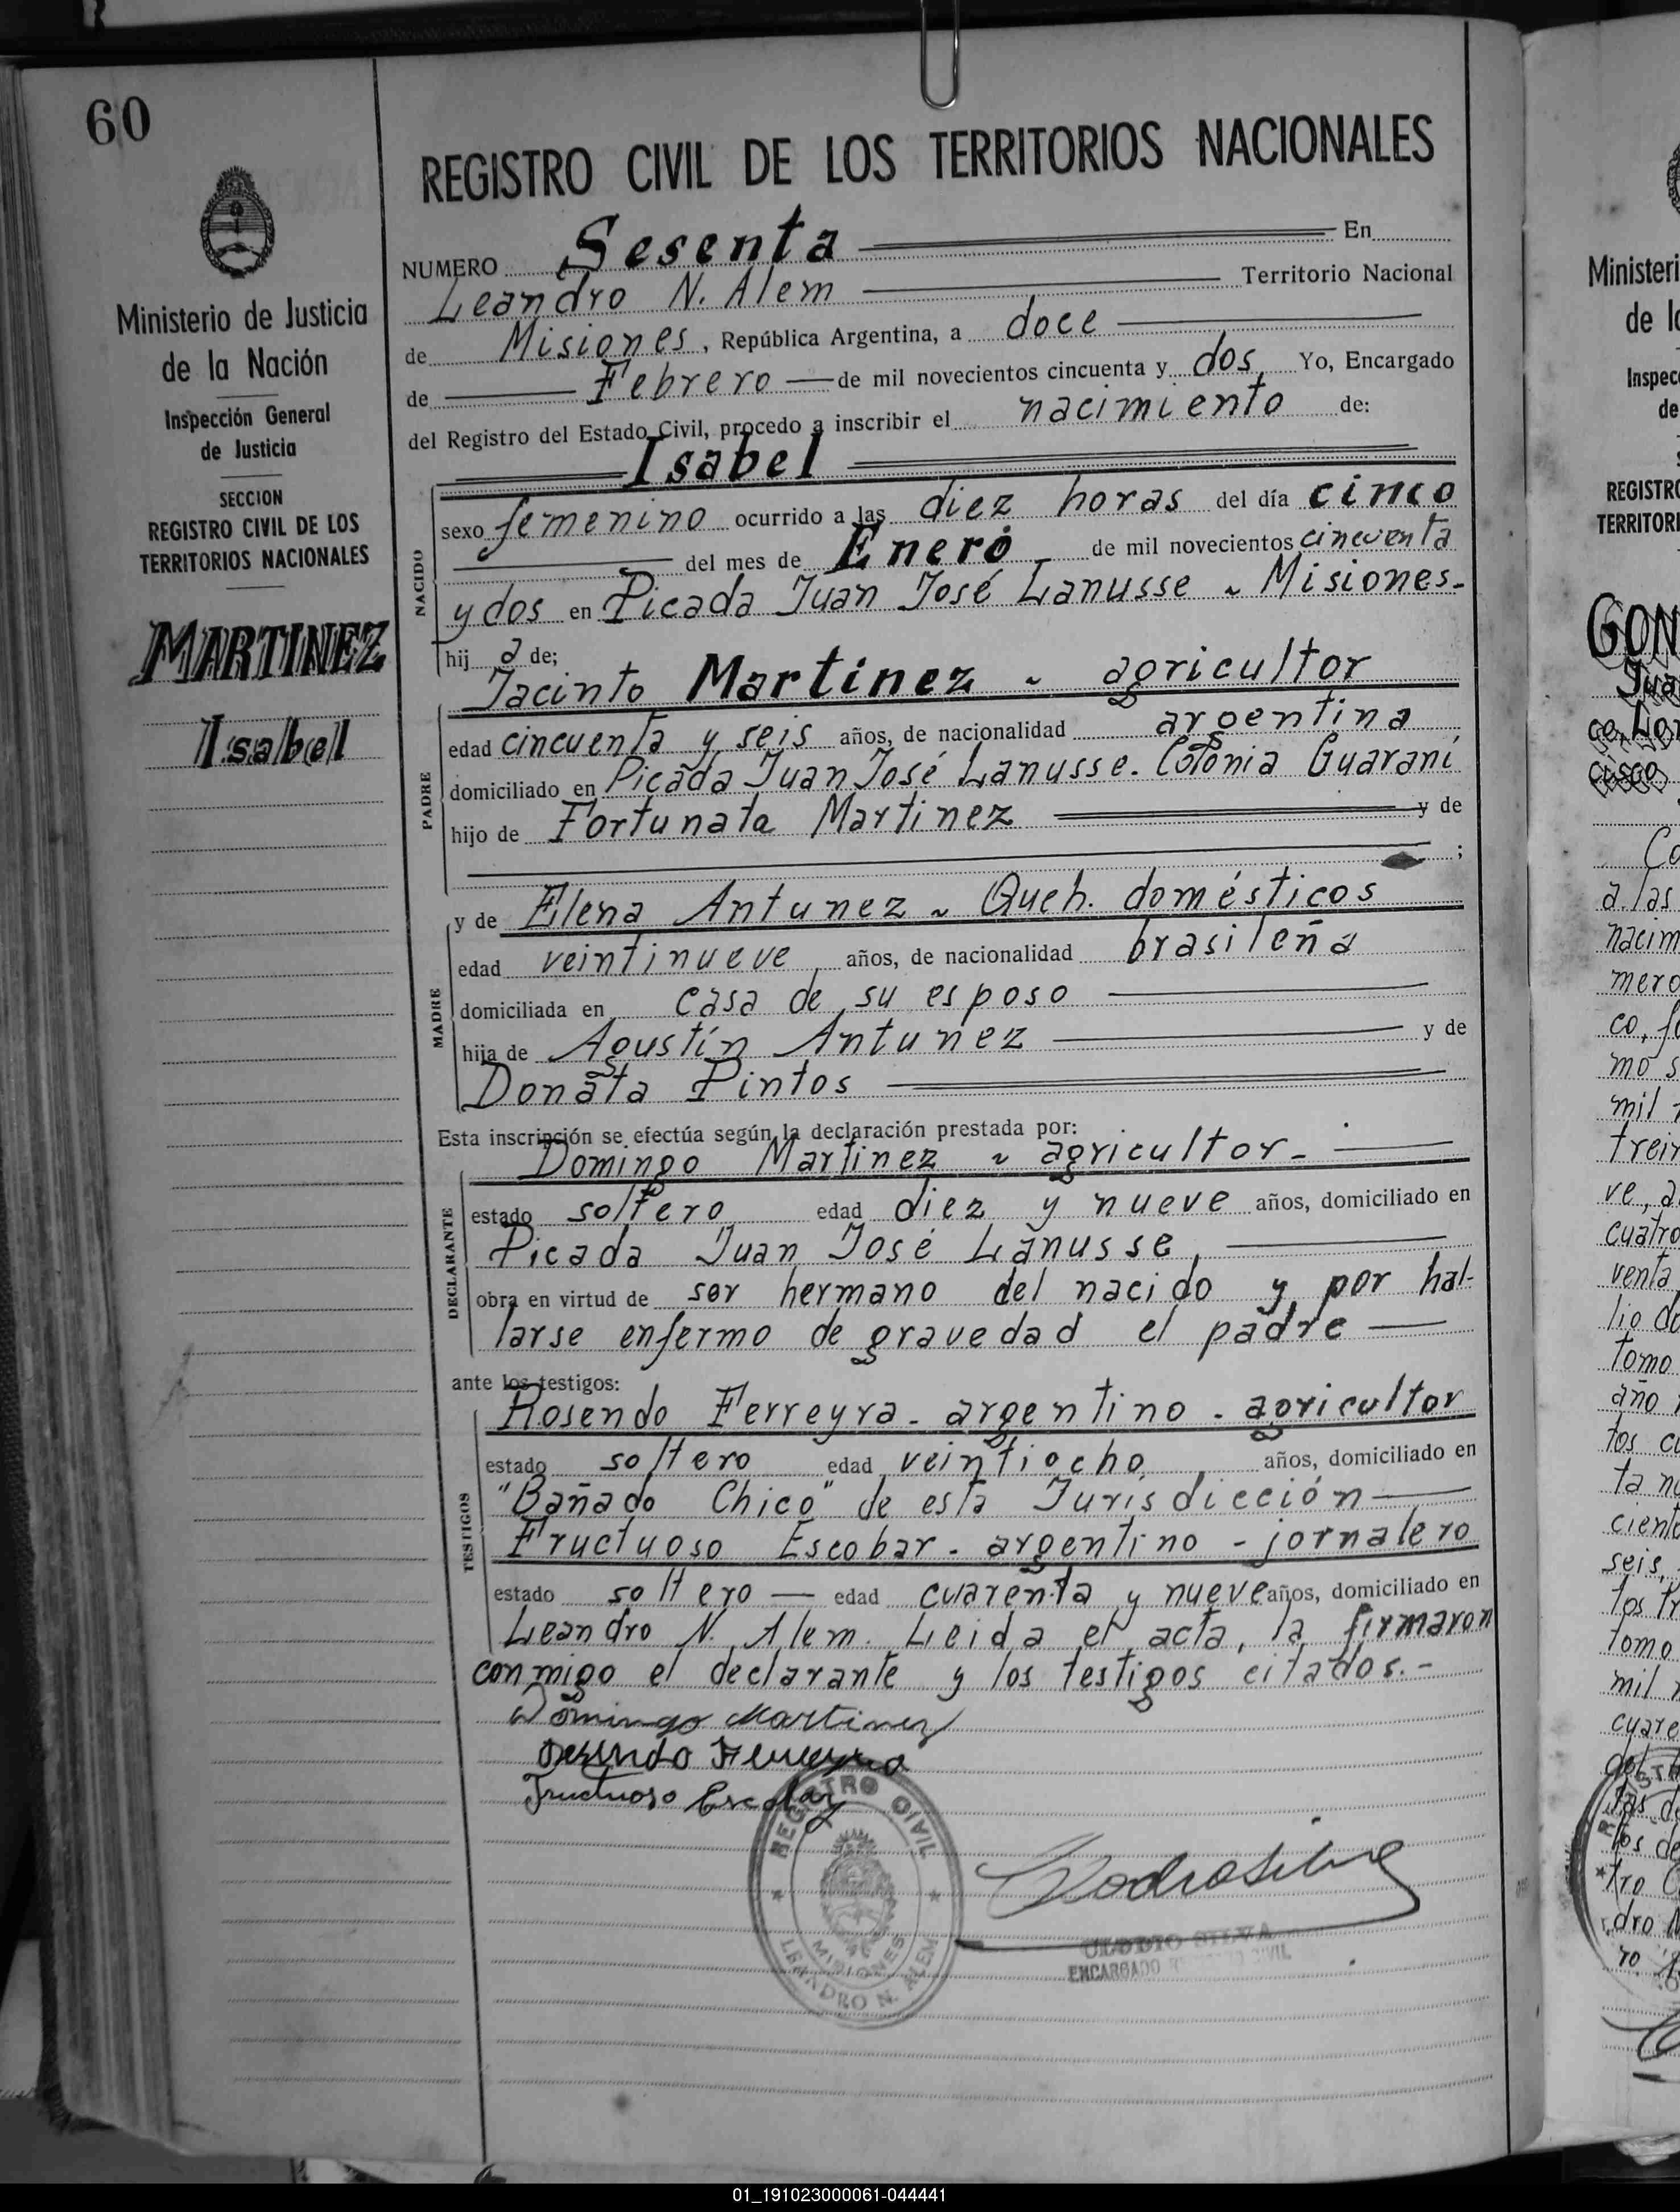 60
REGISTRO CIVIL DE LOS TERRITORIOS NACIONALES
NUMERO Sesenta En
Leandro N. Alem Territorio Nacional
de Misiones, República Argentina, a doce
de Febrero de mil novecientos cincuenta y dos Yo, Encargado
del Registro del Estado Civil, procedo a inscribir el nacimiento de:
Isabel
NACIDO
sexo femenino ocurrido a las diez horas del día cinco
del mes de Enero de mil novecientos cincuenta
y dos en Picada Juan José Lanusse - Misiones-
hija de;
PADRE
Jacinto Martinez - agricultor
edad cincuenta y seis años, de nacionalidad argentina
domiciliado en Picada Juan José Lanusse. Colonia Guaraní
hijo de Fortunata Martinez y de
;
MADRE
y de Elena Antunez - Queh. domésticos
edad veintinueve años, de nacionalidad brasileña
domiciliada en casa de su esposo
hija de Agustín Antunez y de
Donata Pintos
Esta inscripción se efectúa según la declaración prestada por:
DECLARANTE
Domingo Martinez - agricultor-
estado soltero edad diez y nueve años, domiciliado en
Picada Juan José Lanusse,
obra en virtud de ser hermano del nacido y por hal-
larse enfermo de gravedad el padre
ante los testigos:
TESTIGOS
Rosendo Ferreyra - argentino - agricultor
estado soltero edad veintiocho años, domiciliado en
"Bañado Chico" de esta Jurisdicción
Fructuoso Escobar - argentino - jornalero
estado soltero edad cuarenta y nueve años, domiciliado en
Leandro N. Alem. Leida el acta, la firmaron
conmigo el declarante y los testigos citados.-
Domingo Martinez
Rosendo Ferreyra
Fructuoso Escobar
REGISTRO CIVIL
MISIONES
LEANDRO N. ALEM
CLODIO SILVA
ENCARGADO REGISTRO CIVIL
Ministerio de Justicia
de la Nación
Inspección General
de Justicia
SECCION
REGISTRO CIVIL DE LOS
TERRITORIOS NACIONALES
MARTINEZ
Isabel
Ministeri
de la
Inspec
de
REGISTRO
TERRITORI
GON
Jua
cisco
Co
a las
nacim
mero
co, fo
mo s
mil
trein
ve, a
cuatro
venta
lio de
tomo
año
tos cu
ta nu
ciento
seis,
los tr
tomo
mil n
cuare
del
los de
tro C
dro N
ro
01_191023000061-044441